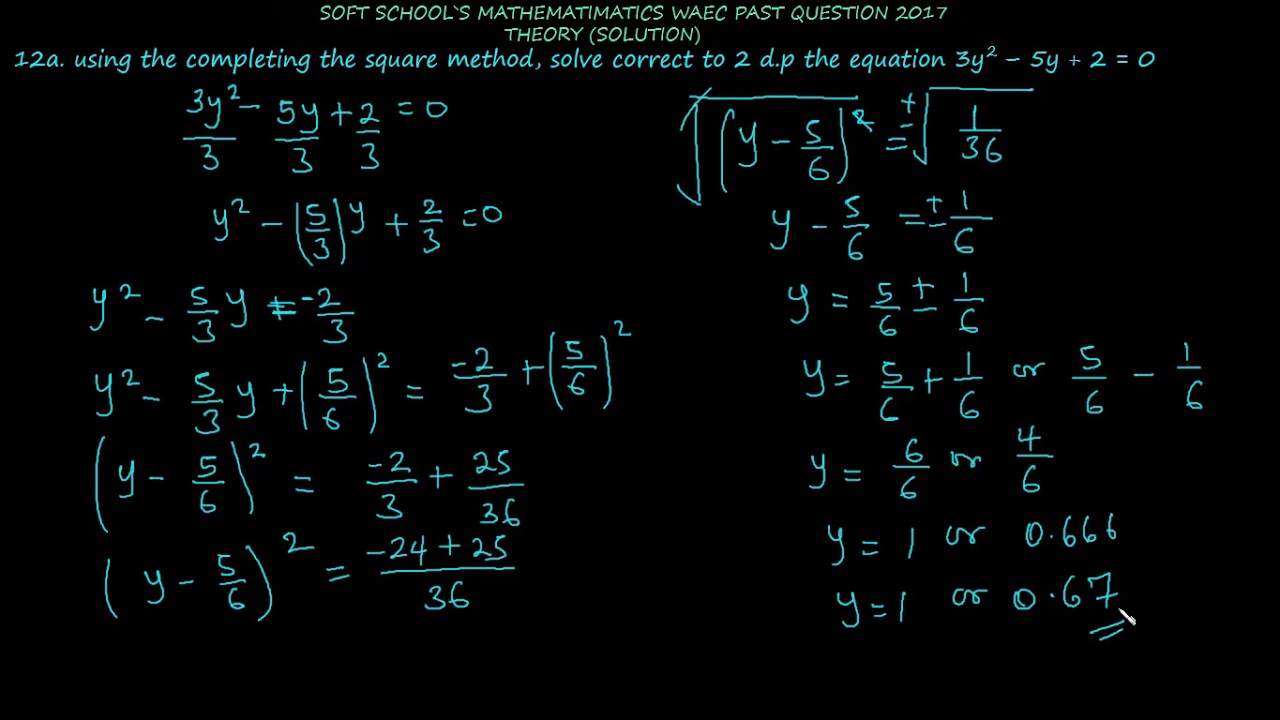 SOFT SCHOOL`S MATHEMATIMATICS WAEC PAST QUESTION 2017
THEORY (SOLUTION)
12a. using the completing the square method, solve correct to 2 d.p the equation 3y² – 5y + 2 = 0
3y²/3 - 5y/3 + 2/3 = 0
y² - (5/3)y + 2/3 = 0
y² - 5/3 y = -2/3
y² - 5/3 y + (5/6)² = -2/3 + (5/6)²
(y - 5/6)² = -2/3 + 25/36
(y - 5/6)² = -24 + 25/36
√(y - 5/6)² = ±√1/36
y - 5/6 = ± 1/6
y = 5/6 ± 1/6
y = 5/6 + 1/6 or 5/6 - 1/6
y = 6/6 or 4/6
y = 1 or 0.666
y = 1 or 0.67